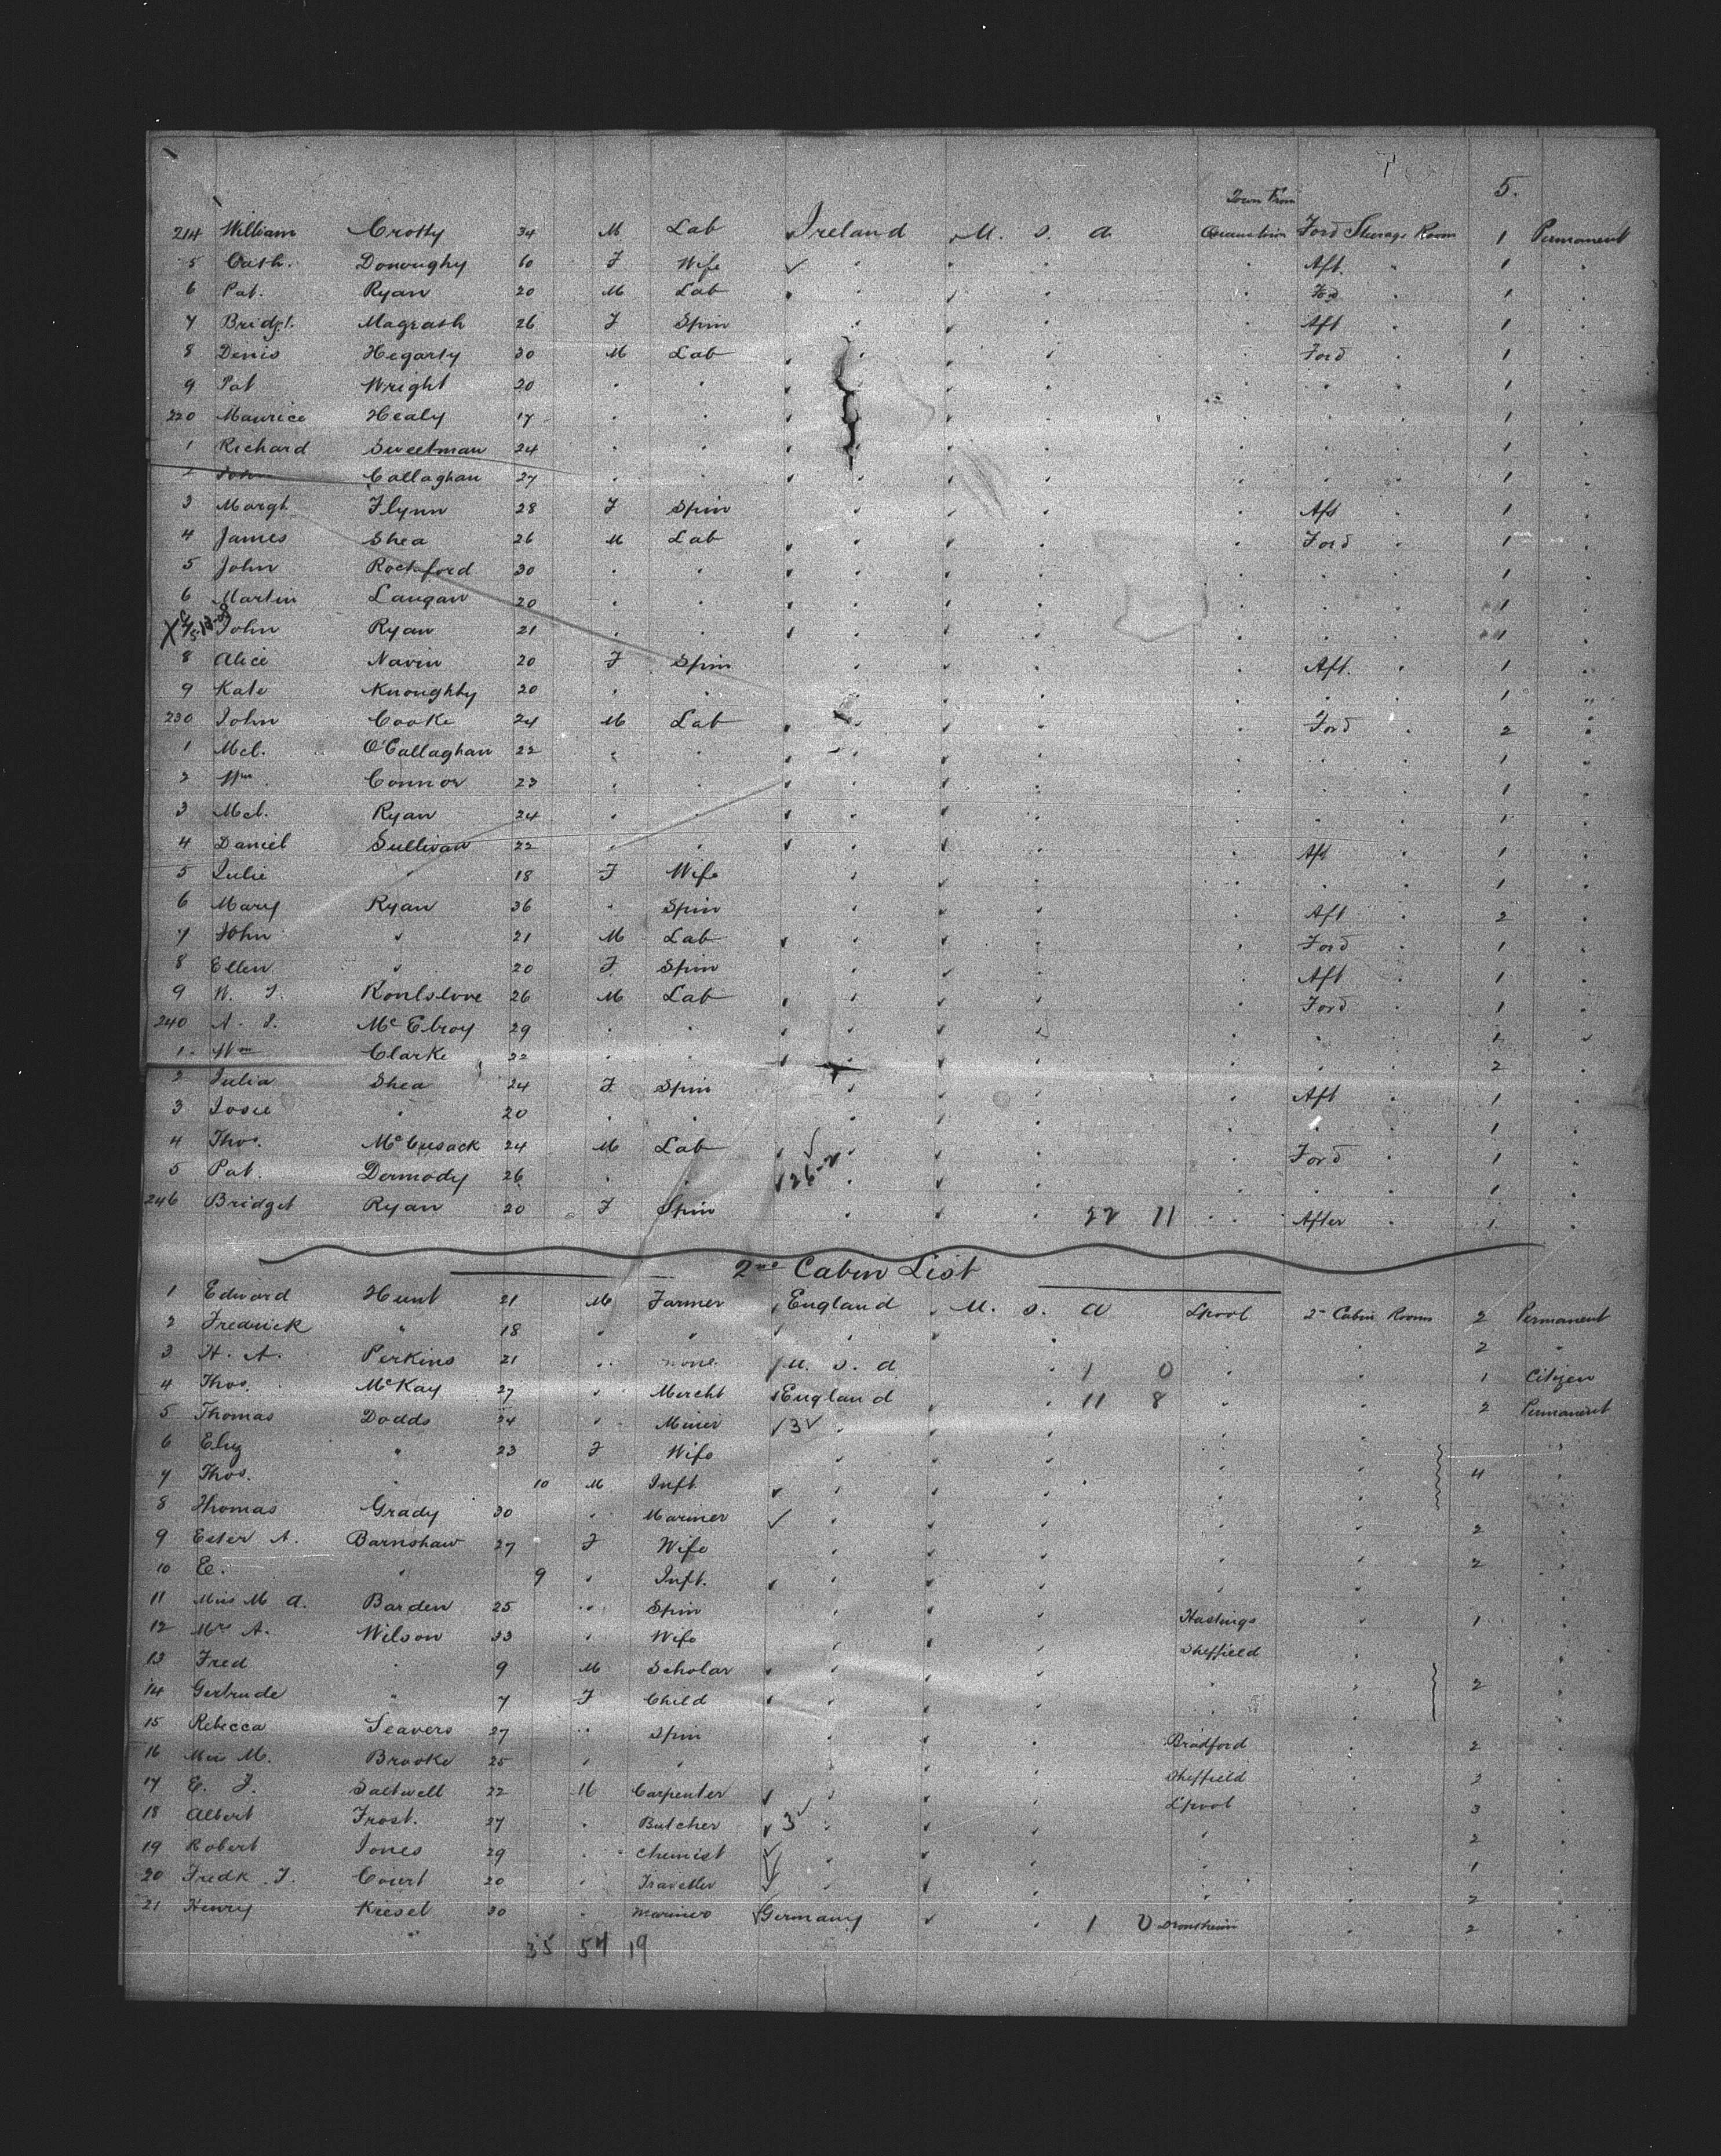 5.
Town From
214 William Crotty 34 M Lab Ireland U. S. A Ford Steerage Room 1 Permanent
5 Cath. Donoughy 60 F Wife " " " Aft. " 1 "
6 Pat. Ryan 20 M Lab " " " Ford 1 "
7 Bridgt. Magrath 26 F Spin " " " Aft " 1 "
8 Denis Hegarty 30 M Lab " " " Ford " 1 "
9 Pat Wright 20 " " " " " " " 1 "
220 Maurice Healy 17 " " " " " " " 1 "
1 Richard Sweetman 24 " " " " " " " 1 "
2 John Callaghan 27 " " " " " " " 1 "
3 Margt Flynn 28 F Spin " " " Aft " 1 "
4 James Shea 26 M Lab " " " Ford " 1 "
5 John Rochford 30 " " " " " " " 1 "
6 Martin Langan 20 " " " " " " " 1 "
John Ryan 21 " " " " " " " 1 "
8 Alice Navin 20 F Spin " " " Aft. " 1 "
9 Kate Knoughty 20 " " " " " " " 1 "
230 John Cooke 24 M Lab " " " Ford " 2 "
1 Mcl. O'Callaghan 22 " " " " " " " 1 "
2 Wm Connor 23 " " " " " " " 1 "
3 Mcl. Ryan 24 " " " " " " " 1 "
4 Daniel Sullivan 22 " " " " " Aft " 1 "
5 Julie 18 F Wife " " " " " 1 "
6 Mary Ryan 36 " Spin " " " Aft " 2 "
7 John " 21 M Lab " " " Ford " 1 "
8 Ellen " 20 F Spin " " " Aft " 1 "
9 W. J. 26 M Lab " " " Ford " 1 "
240 A. S. McElroy 29 " " " " " " " 1 "
1 Wm Clarke 22 " " " " " " " 2 "
2 Julia Shea 24 F Spin " " " Aft " 1 "
3 Josie " 20 " " " " " " " 1 "
4 Thos. McCusack 24 M Lab " " " Ford " 1 "
5 Pat. Dermody 26 " " 26-2 " " " " 1 "
246 Bridget Ryan 20 F Spin " " " 22 11 " After " 1 "
2nd Cabin List
1 Edward Hunt 21 M Farmer England U. S. A Lpool 2nd Cabin Rooms 2 Permanent
2 Fredrick " 18 " " " " " " " 2 "
3 H. A. Perkins 21 " none U. S. A " 1 0 " " 1 Citizen
4 Thos. McKay 27 " Mercht England " 11 8 " " 2 Permanent
5 Thomas Dodds 24 " Miner 3 " " " " " "
6 Eliz " 23 F Wife " " " " " "
7 Thos. " 10 M Inft " " " " " 4 "
8 Thomas Grady 30 " Mariner " " " " " 2 "
9 Ester A. Barnshaw 27 F Wife " " " " " 2 "
10 E. " 9 " Inft. " " " " " "
11 Miss M A. Barden 25 " Spin " " " Hastings " 1 "
12 Mrs A. Wilson 33 " Wife " " " Sheffield " "
13 Fred " 9 M Scholar " " " " " 2 "
14 Gertrude " 7 F Child " " " " " "
15 Rebecca Seavers 27 " Spin " " " Bradford " 2 "
16 Miss M. Brooke 25 " " " " " Sheffield " 2 "
17 E. J. Saltwell 22 M Carpenter " " " Lpool " 3 "
18 Albert Frost. 27 " Butcher 3 " " " " 2 "
19 Robert Jones 29 " Chemist " " " " " 1 "
20 Fredk. J. Court 20 " Traveller " " " " " 2 "
21 Henry Kiesel 30 " Mariner Germany " " 1 0 " 2 "
35 54 19